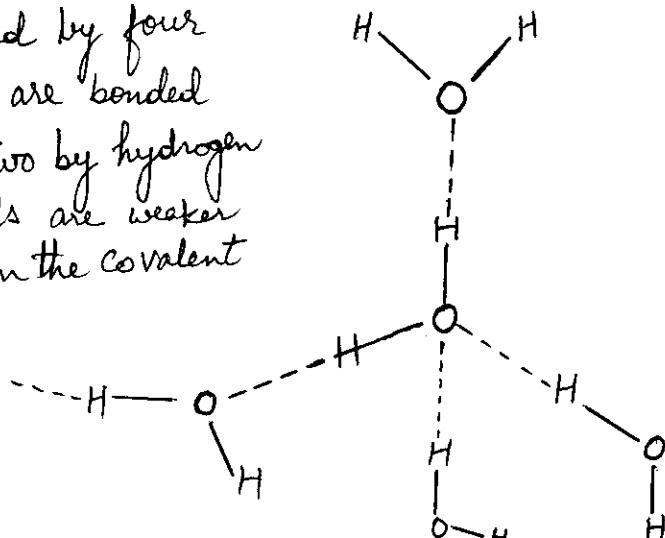 by four
are bonded
by hydrogen
are weaker
the covalent
H H
O
H
O
H
H
H O
H
H
O
H
O H
H